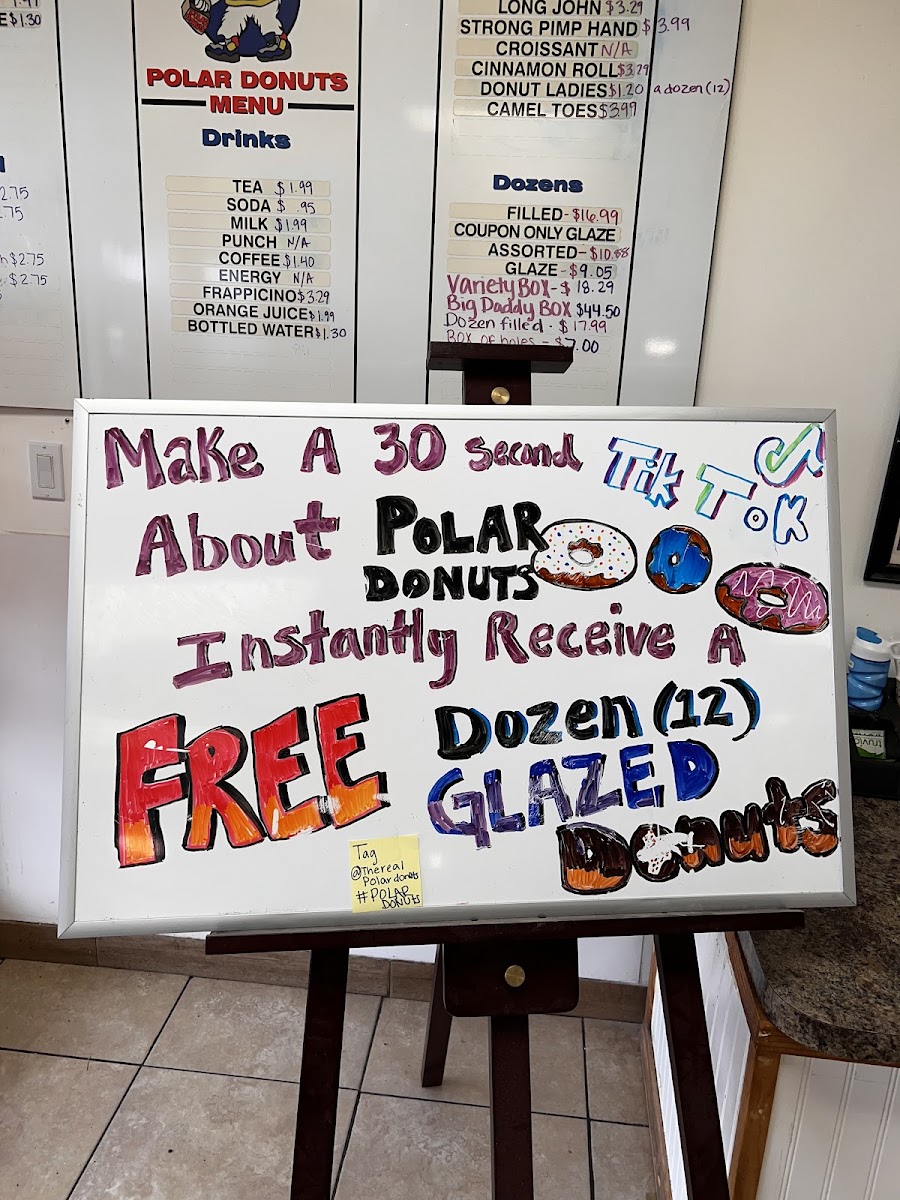 E$1.30
2.75
.75
$2.75
$2.75
POLAR DONUTS
MENU
Drinks
TEA $1.99
SODA $ .95
MILK $1.99
PUNCH N/A
COFFEE $1.40
ENERGY N/A
FRAPPICINO $3.29
ORANGE JUICE $1.99
BOTTLED WATER $1.30
LONG JOHN $3.29
STRONG PIMP HAND $3.99
CROISSANT N/A
CINNAMON ROLL $3.29
DONUT LADIES $1.20 a dozen (12)
CAMEL TOES $3.99
Dozens
FILLED - $16.99
COUPON ONLY GLAZE
ASSORTED - $10.58
GLAZE - $9.05
Variety Box - $18.29
Big Daddy BOX $44.50
Dozen filled - $17.99
Box of holes - $7.00
Make A 30 second TikTok
About POLAR
DONUTS
Instantly Receive A
FREE Dozen (12)
GLAZED
Donuts
Tag
@Thereal
Polardonuts
#POLAR
DONUTS
truvia